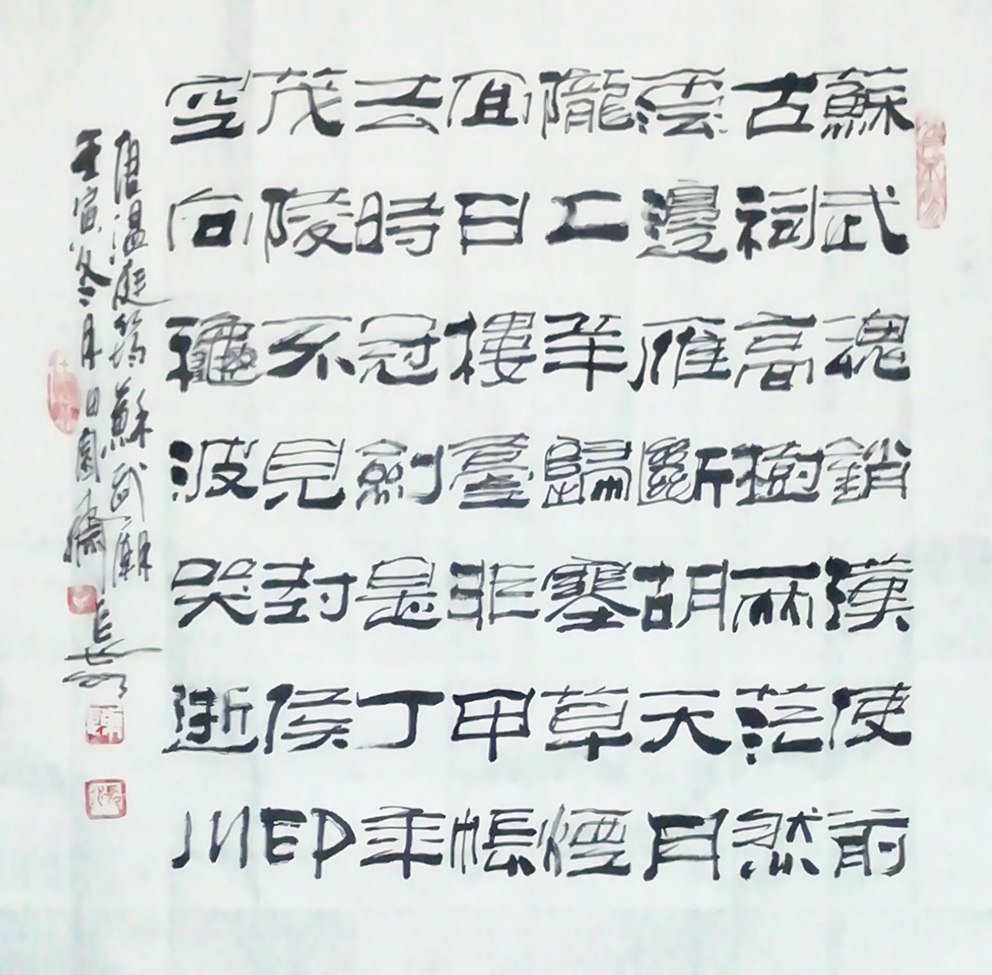 蘇武魂銷漢使前
古祠高樹兩茫然
雲邊雁斷胡天月
隴上羊歸塞草煙
回日樓臺非甲帳
去時冠劍是丁年
茂陵不見封侯印
空向龝波哭逝川
唐溫庭筠蘇武廟
壬寅冬月日